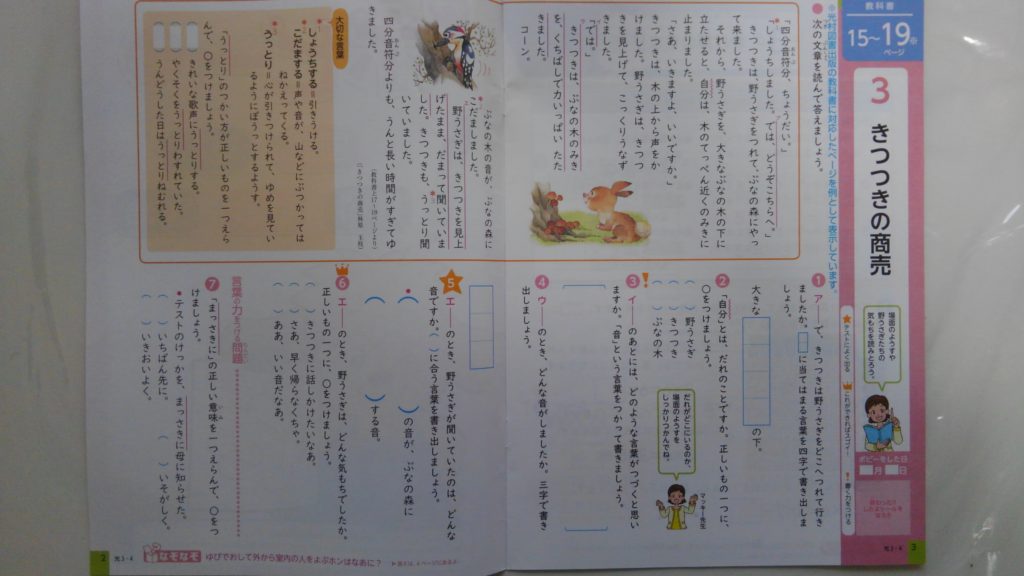 教科書
15～19ページ
3 きつつきの商売
※光村図書出版の教科書に対応したページを例として表示しています。
次の文章を読んで答えましょう。
「四分音符分、ちょうだい。」
「しょうちしました。では、どうぞこちらへ。」
きつつきは、野うさぎをつれて、ぶなの森にやっ
て来ました。
それから、野うさぎを、大きなぶなの木の下に
立たせると、自分は、木のてっぺん近くのみきに
止まりました。
「さあ、いきますよ、いいですか。」
きつつきは、木の上から声をか
けました。野うさぎは、きつつ
きを見上げて、こっくりうなず
きました。
「では。」
きつつきは、ぶなの木のみき
を、くちばしで力いっぱい たた
きました。
コーン。
ぶなの木の音が、ぶなの森に
こだましました。
野うさぎは、きつつきを見上
げたまま、だまって聞いていま
した。きつつきも、うっとり聞
いていました。
四分音符分よりも、うんと長い時間がすぎてゆ
きました。
大切な言葉
しょうちする＝引きうける。
こだまする＝声や音が、山などにぶつかっては
ねかえってくる。
うっとり＝心が引きつけられて、ゆめを見てい
るようにぼうっとするようす。
「うっとり」のつかい方が正しいものを一つえら
んで、○をつけましょう。
きれいな歌声にうっとりする。
やくそくをうっとりわすれていた。
うんどうした日はうっとりねむれる。
場面のようすや
野うさぎたちの
気もちを読みとろう。
ポピーをした日
月 日
テストによく出る
これができればスゴイ!
書く力をつける
1 ア──で、きつつきは野うさぎをどこへつれて行き
ましたか。□に当てはまる言葉を四字で書き出しま
しょう。
大きな
の下。
2 「自分」とは、だれのことですか。正しいもの一つに、
○をつけましょう。
( )野うさぎ
( )きつつき
( )ぶなの木
だれがどこにいるのか、
場面のようすを
しっかりつかんでね。
マッキー先生
3 イ──のあとには、どのような言葉がつづくと思い
ますか。「音」という言葉をつかって書きましょう。
4 ウ──のとき、どんな音がしましたか。三字で書き
出しましょう。
5 エ──のとき、野うさぎが聞いていたのは、どんな
音ですか。( )に合う言葉を書き出しましょう。
( )の音が、ぶなの森に
( )する音。
6 エ──のとき、野うさぎは、どんな気もちでしたか。
正しいもの一つに、○をつけましょう。
( )きつつきに話しかけたいなあ。
( )さあ、早く帰らなくちゃ。
( )ああ、いい音だなあ。
言葉の力をつける問題
7 「まっさきに」の正しい意味を一つえらんで、○をつ
けましょう。
テストのけっかを、まっさきに母に知らせた。
( )いちばん先に。
( )いそがしく。
( )いきおいよく。
なぞなぞ
ゆびでおして外から室内の人をよぶホンはなあに？
2 光3・4
光3・4 3